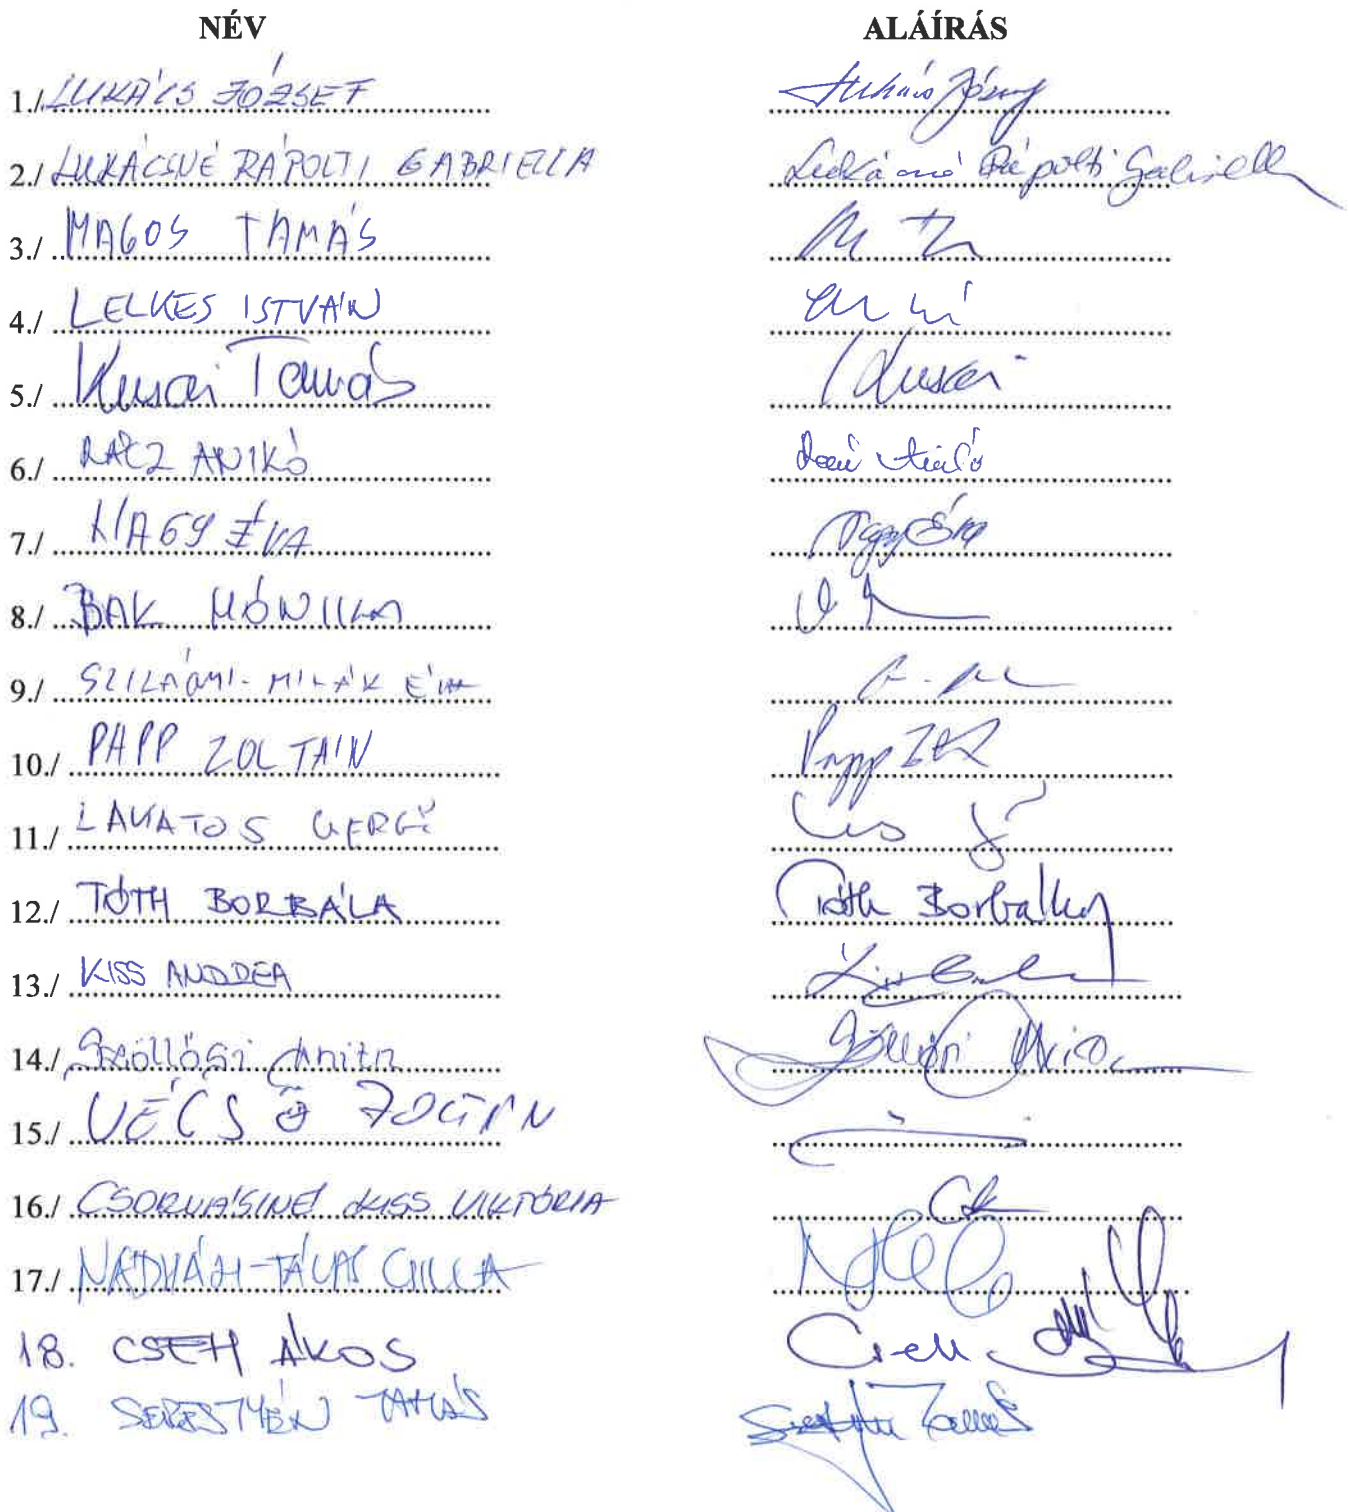 NÉV ALÁÍRÁS
1./ LUKÁCS JÓZSEF Lukács József
2./ LUKÁCSNÉ RÁPOLTI GABRIELLA Lukácsné Rápolti Gabriella
3./ MAGOS TAMÁS
4./ LELKES ISTVÁN
5./ Kusai Tamás Kusai
6./ RÁCZ ANIKÓ Rácz Anikó
7./ NAGY ÉVA Nagy Éva
8./ BAK MÓNIKA
9./ SZILÁGYI-MILÁK ÉVA
10./ PAPP ZOLTÁN Papp
11./ LAKATOS GERGŐ
12./ TÓTH BORBÁLA Tóth Borbála
13./ KISS ANDREA
14./ Szöllősi Anita Szöllősi Anita
15./ VÉCSŐ ZOLTÁN
16./ CSORVÁSINÉ KISS VIKTÓRIA
17./ CSILLA
18. CSEH ÁKOS Cseh
19. SEBESTYÉN TAMÁS Tamás